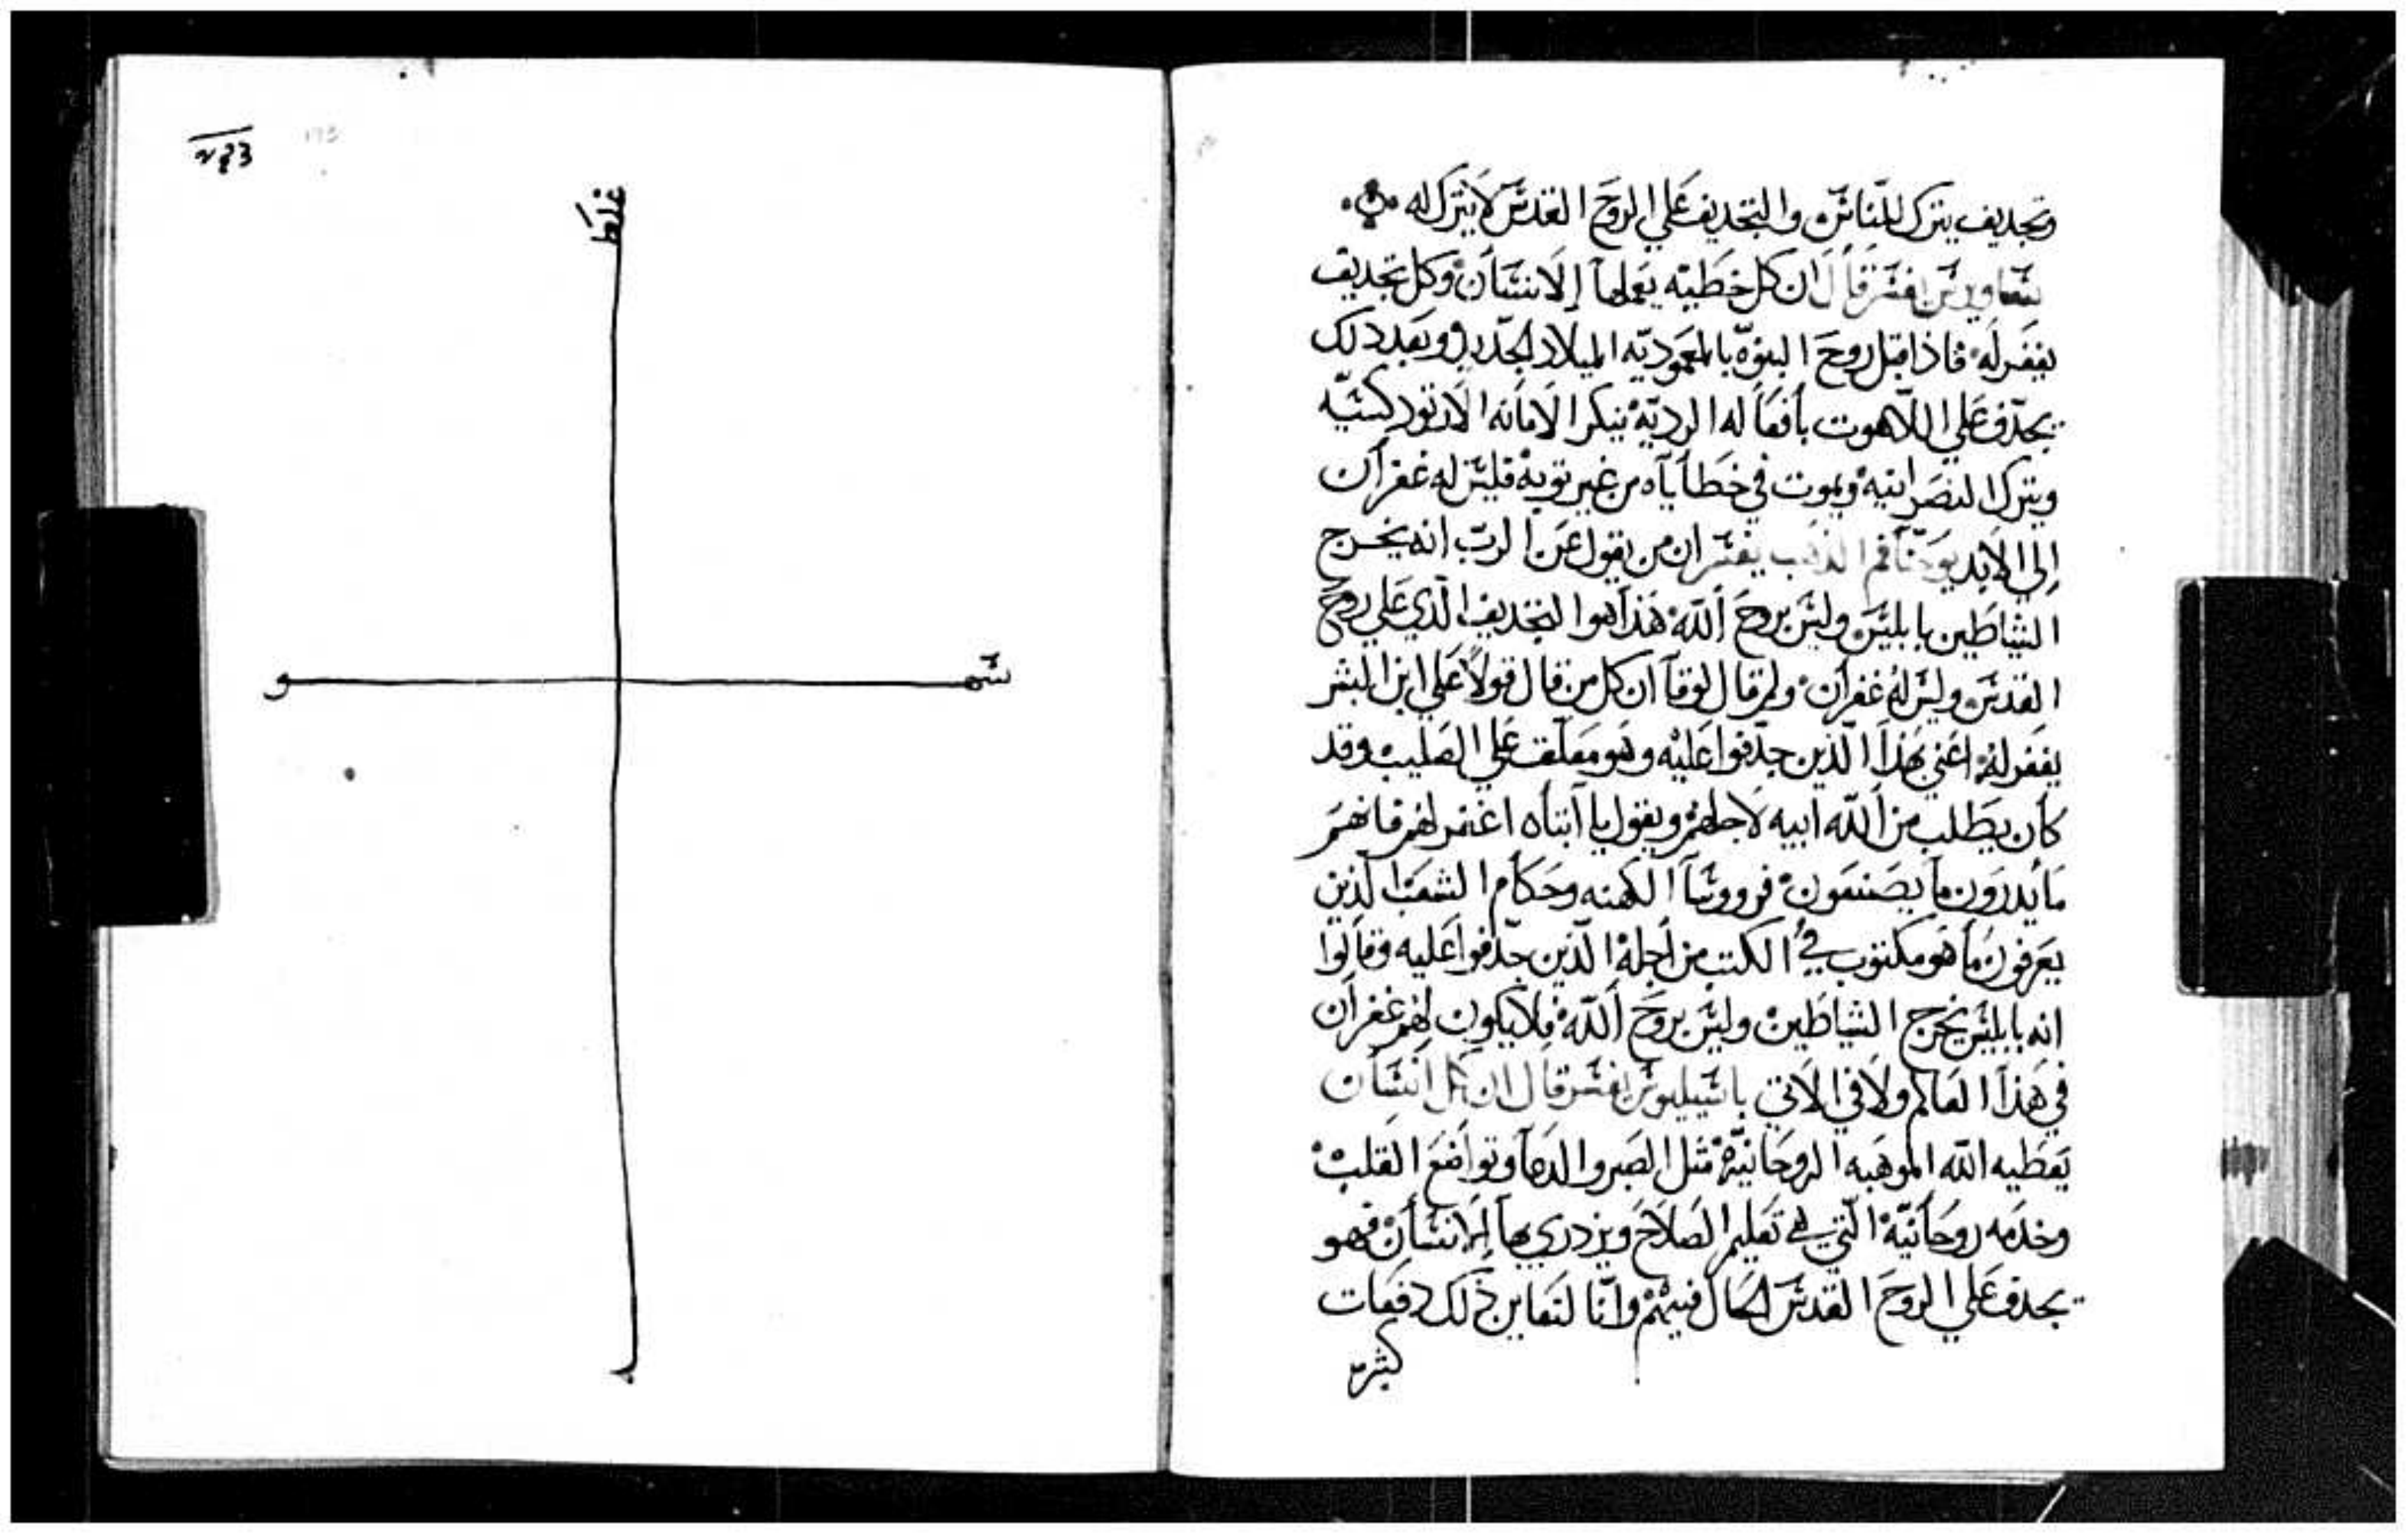 وتجديف يترك للناس والتجديف علي الروح القدس لا يترك له
ساويرس يفسر قال ان كل خطيه يعملها الانسان وكل تجديف
يغفر له فاذا قبل روح البنوه بالمعموديه الميلاد الجديد وبعد ذلك
يجدّف علي اللاهوت بأفعاله الرديّه ينكر الامانه الارتودكسيّه
ويترك النصرانيه ويموت في خطاياه من غير توبه فليس له غفران
إلي الابد يوحنا فم الذهب يفسر ان من يقول عن الرب انه يخرج
الشياطين بابليس وليس بروح اللّه هذا هوا التجديف الّذي علي روح
القدس وليس له غفران ولم قال لوقا ان كل من قال قولاً علي ابن البشر
يغفر له اعني بهذا الّذين جدّفوا عليه وهو معلّق علي الصليب وقد
كان يطلب من اللّه ابيه لاجلهم ويقول يا ابتاه اغفر لهم فانهم
ما يدرون ما يصنعون فرووسا الكهنه وحكام الشعب الّذين
يعرفون ما هو مكتوب في الكتب من اجله الّذين جدّفوا عليه وقالوا
انه بابليس يخرج الشياطين وليس بروح اللّه فلا يكون لهم غفران
في هذا العالم ولا في الاتي باسيليوس يفسر قال ان كل انسان
يعطيه اللّه الموهبه الروحانيّه مثل الصبر والدعا وتواضع القلب
وخدمه روحانيّه الّتي هي تعليم الصلاح ويزدري بها الانسان فهو
يجدف علي الروح القدس الحال فيهم وانّا لنعاين ذلك دفعات
كثيره
غلط
سهو